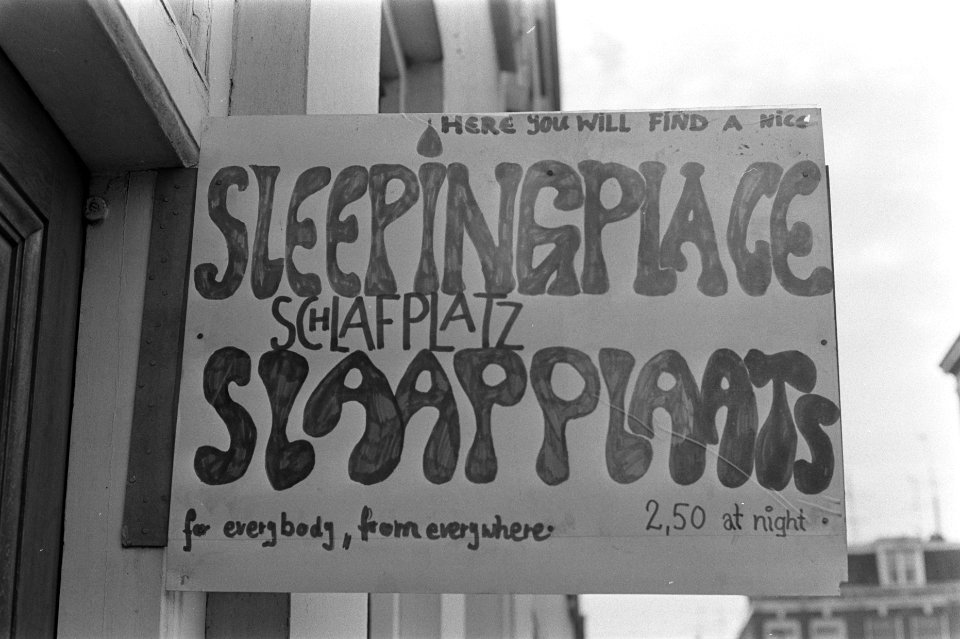 HERE YOU WILL FIND A NICE
SLEEPINGPLACE
SCHLAFPLATZ
SLAAPPLAATS
for everybody, from everywhere.
2,50 at night